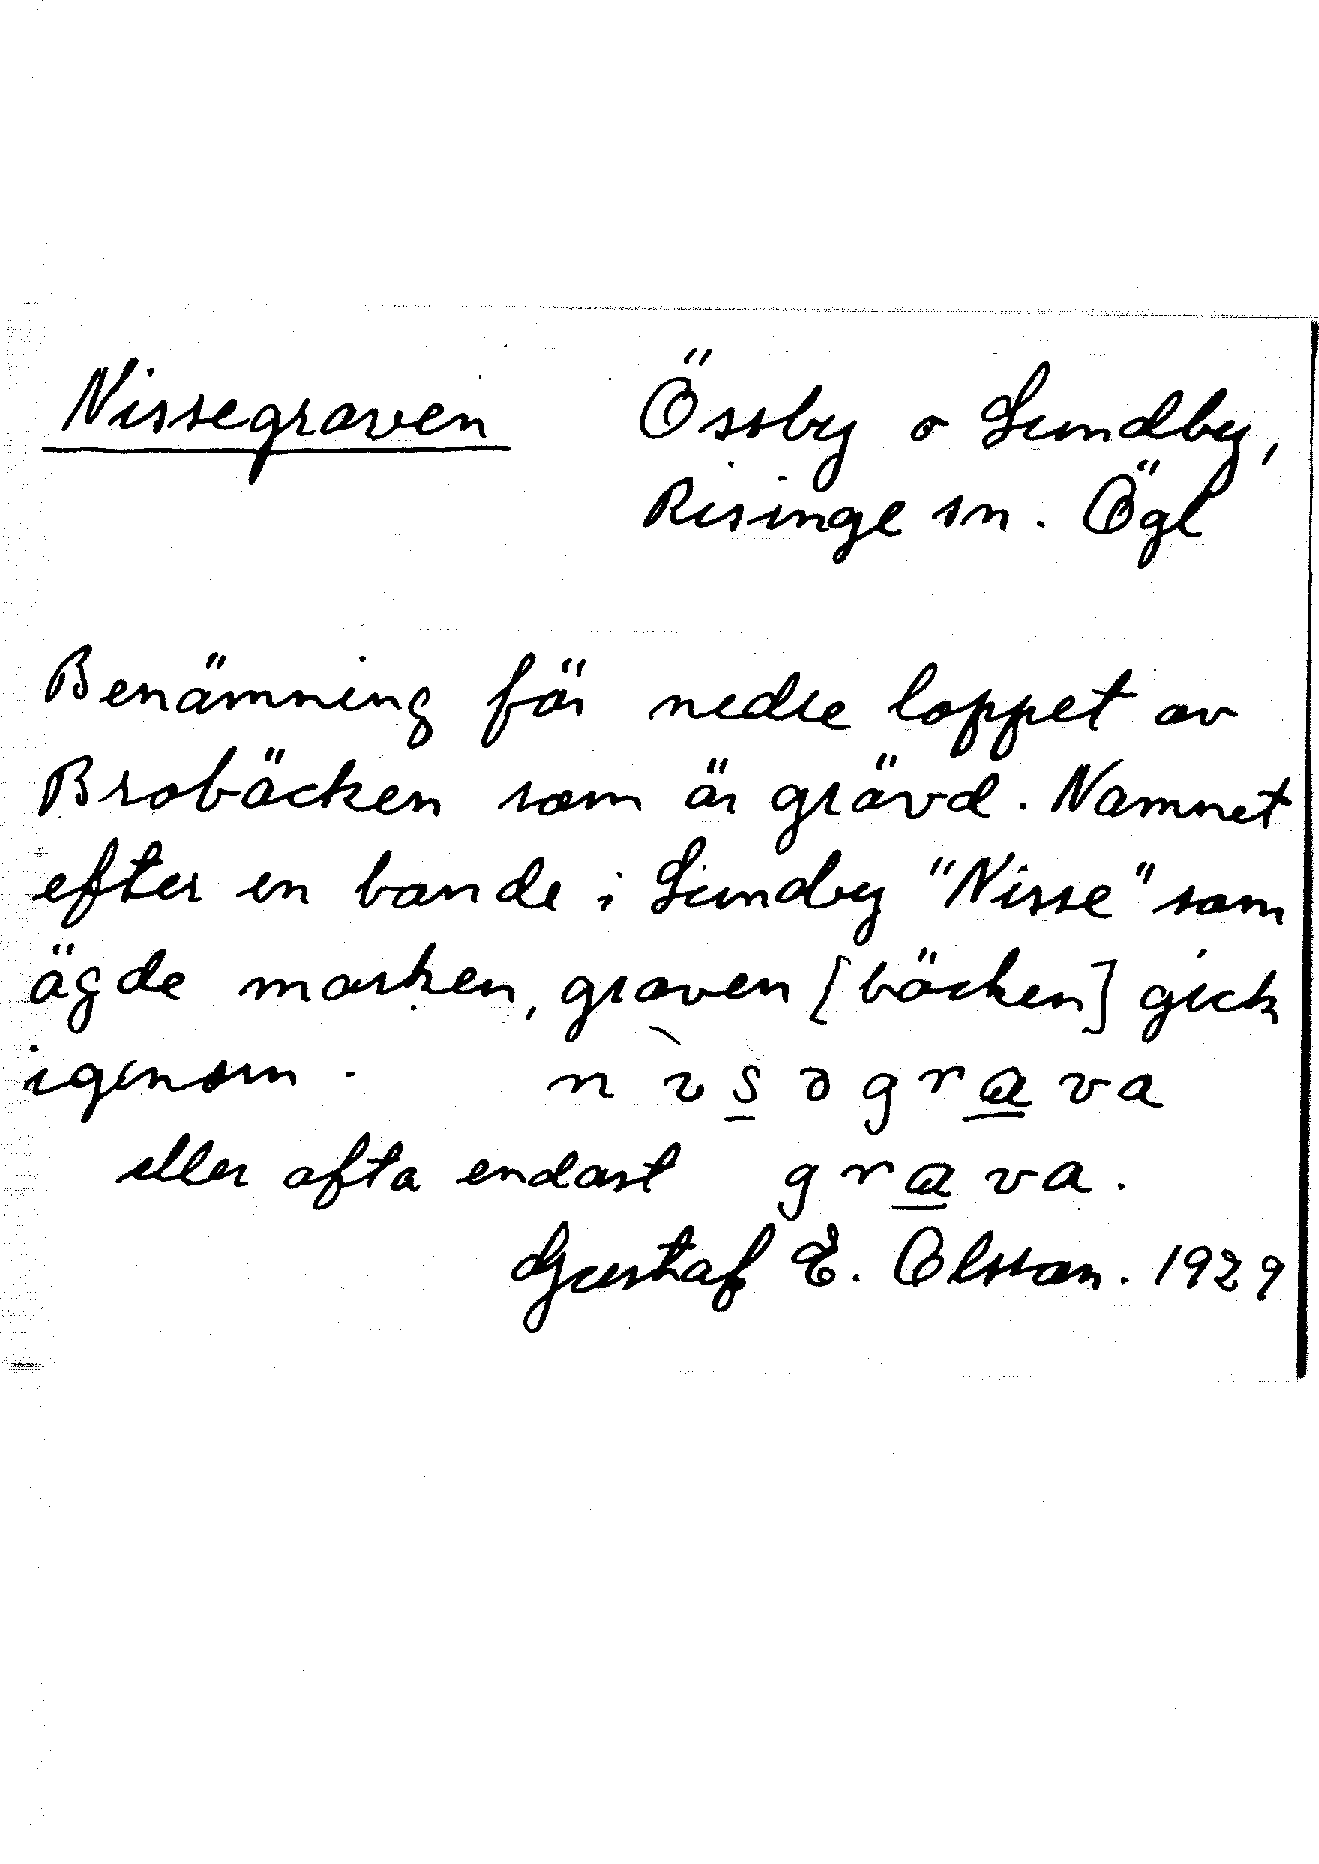 Nissegraven Össby o Lundby,
Risinge sn. Ögl
Benämning för nedre loppet av
Brobäcken som är grävd. Namnet
efter en bonde i Lundby "Nisse" som
ägde marken, graven [bäcken] gick
igenom. nìsəgrava
eller ofta endast grava.
Gustaf E. Olsson. 1929